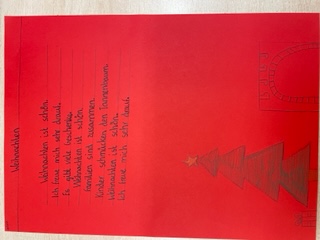 Weihnachten
Weihnachten ist schön.
Ich freue mich sehr darauf.
Es gibt viele Geschenke.
Weihnachten ist schön.
Familien sind zusammen.
Kinder schmücken den Tannenbaum.
Weihnachten ist schön.
Ich freue mich sehr darauf.